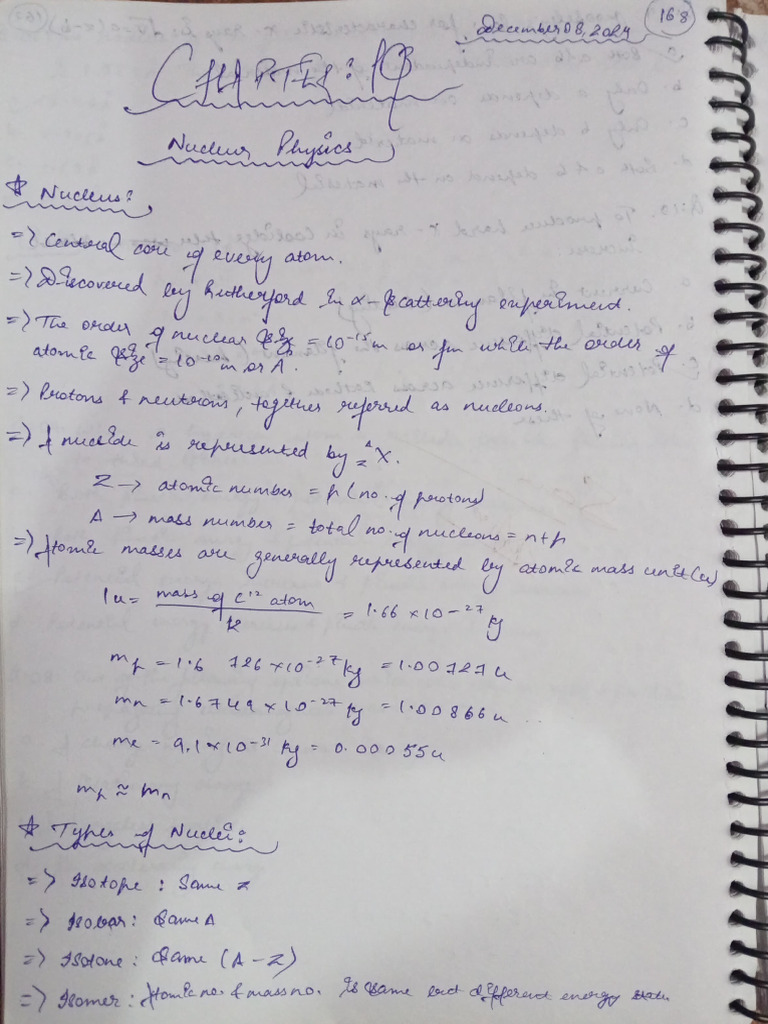 168
December 08, 2024
CHAPTER: 19
Nuclear Physics
* Nucleus:
=> Central core of every atom.
=> Discovered by Rutherford in α-scattering experiment.
=> The order of nuclear size = 10⁻¹⁵m or fm while the order of
atomic size = 10⁻¹⁰m or A.
=> Protons & neutrons, together referred as nucleons.
=> A nuclide is represented by ᴬ_Z X.
Z -> atomic number = p (no. of protons)
A -> mass number = total no. of nucleons = n+p
=> Atomic masses are generally represented by atomic mass unit (u)
1u = mass of C¹² atom / 12 = 1.66 × 10⁻²⁷ kg
mp = 1.6 726 × 10⁻²⁷ kg = 1.00727 u
mn = 1.6749 × 10⁻²⁷ kg = 1.00866 u
me = 9.1 × 10⁻³¹ kg = 0.00055u
mp ≈ mn
* Types of Nuclei:
=> Isotope : Same Z
=> Isobar : Same A
=> Isotone : Same (A - Z)
=> Isomer : Atomic no. & mass no. is same but different energy state